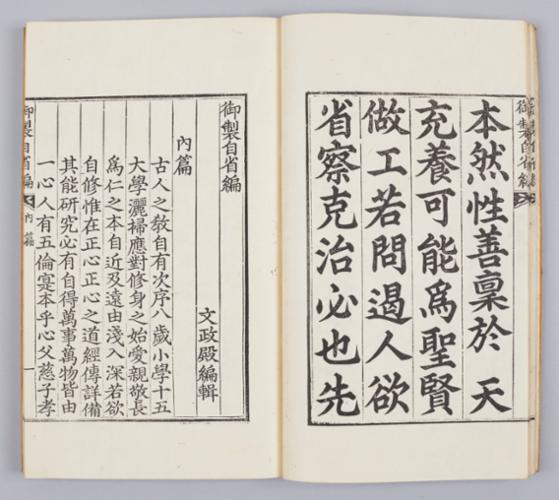 本然性善稟於 天
充養可能爲聖賢
做工若問遏人欲
省察克治必也先
御製自省編
文政殿編輯
內篇
古人之敎自有次序八歲小學十五
大學灑掃應對修身之始愛親敬長
爲仁之本自近及遠由淺入深若欲
自修惟在正心正心之道經傳詳備
其能硏究必有自得萬事萬物皆由
一心人有五倫寔本乎心父慈子孝
御製自省編 內篇 一